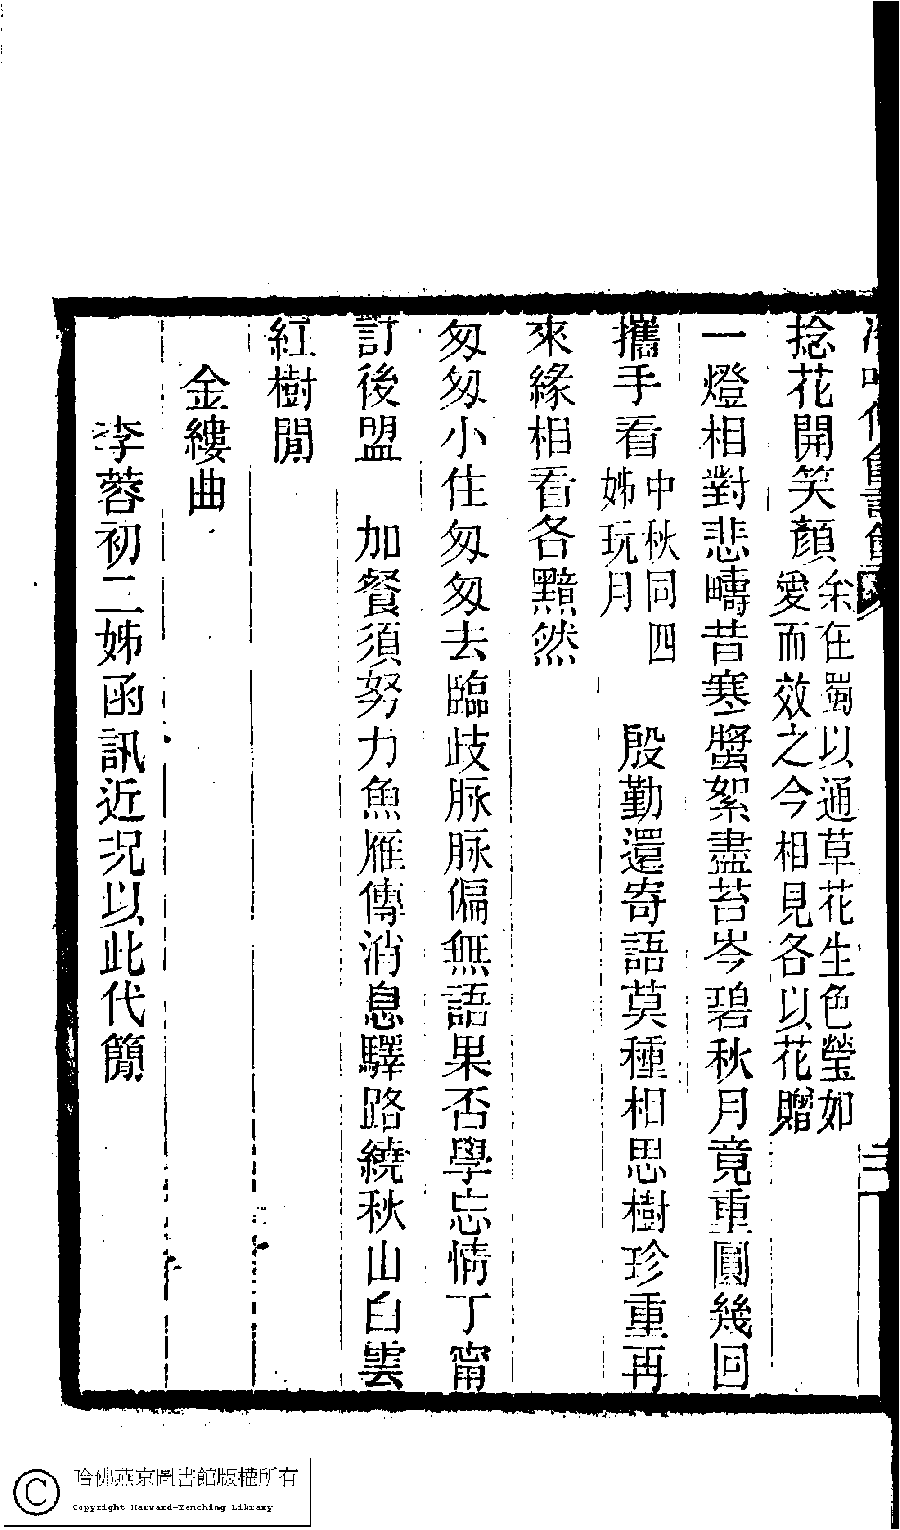 捻花開笑顏余在蜀以通草花生色瑩如愛而效之今相見各以花贈
一燈相對悲疇昔寒螿絮盡苔岑碧秋月竟重圓幾回
攜手看中秋同四姊玩月　殷勤還寄語莫種相思樹珍重再
來緣相看各黯然
匆匆小住匆匆去臨歧脉脉偏無語果否學忘情丁甯
訂後盟　加餐須努力魚雁傳消息驛路繞秋山白雲
紅樹閒
金縷曲
李蓉初二姊函訊近況以此代簡
三
哈佛燕京圖書館版權所有
Copyright Harvard-Yenching Library